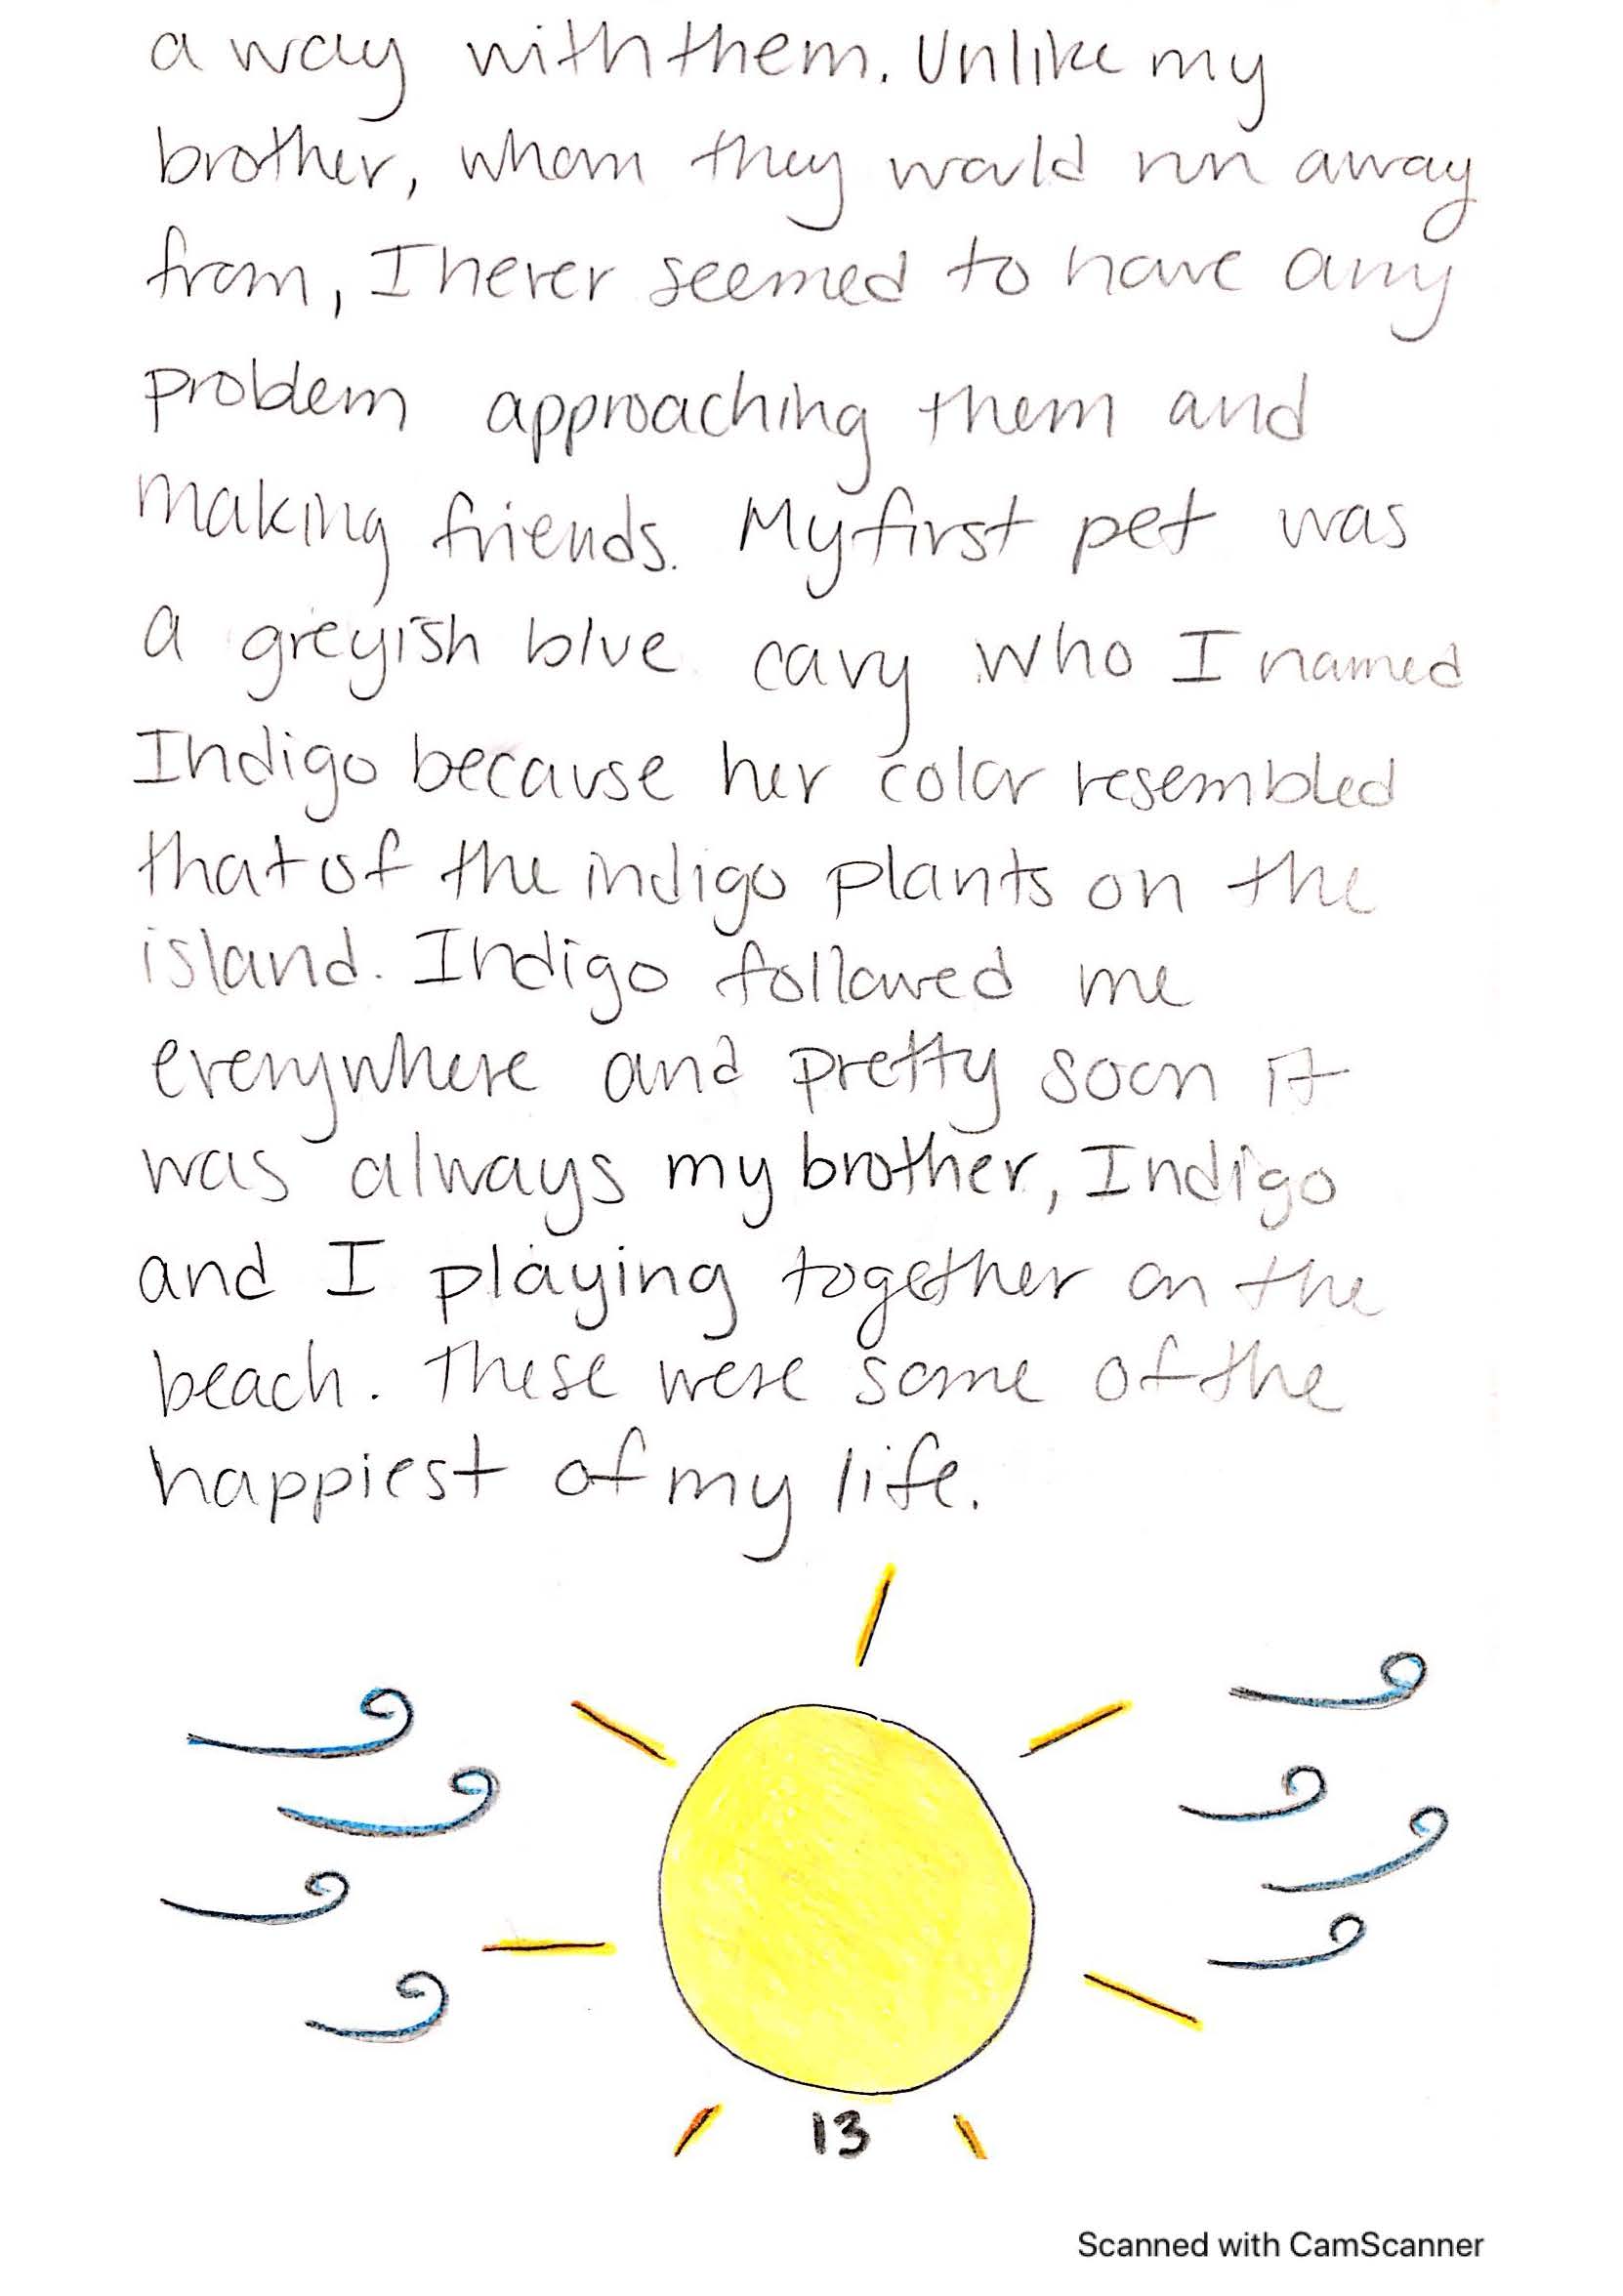 a way with them. Unlike my
brother, whom they would run away
from, I never seemed to have any
problem approaching them and
making friends. My first pet was
a greyish blue cavy who I named
Indigo because her color resembled
that of the indigo plants on the
island. Indigo followed me
everywhere and pretty soon it
was always my brother, Indigo
and I playing together on the
beach. These were some of the
happiest of my life.
13
Scanned with CamScanner